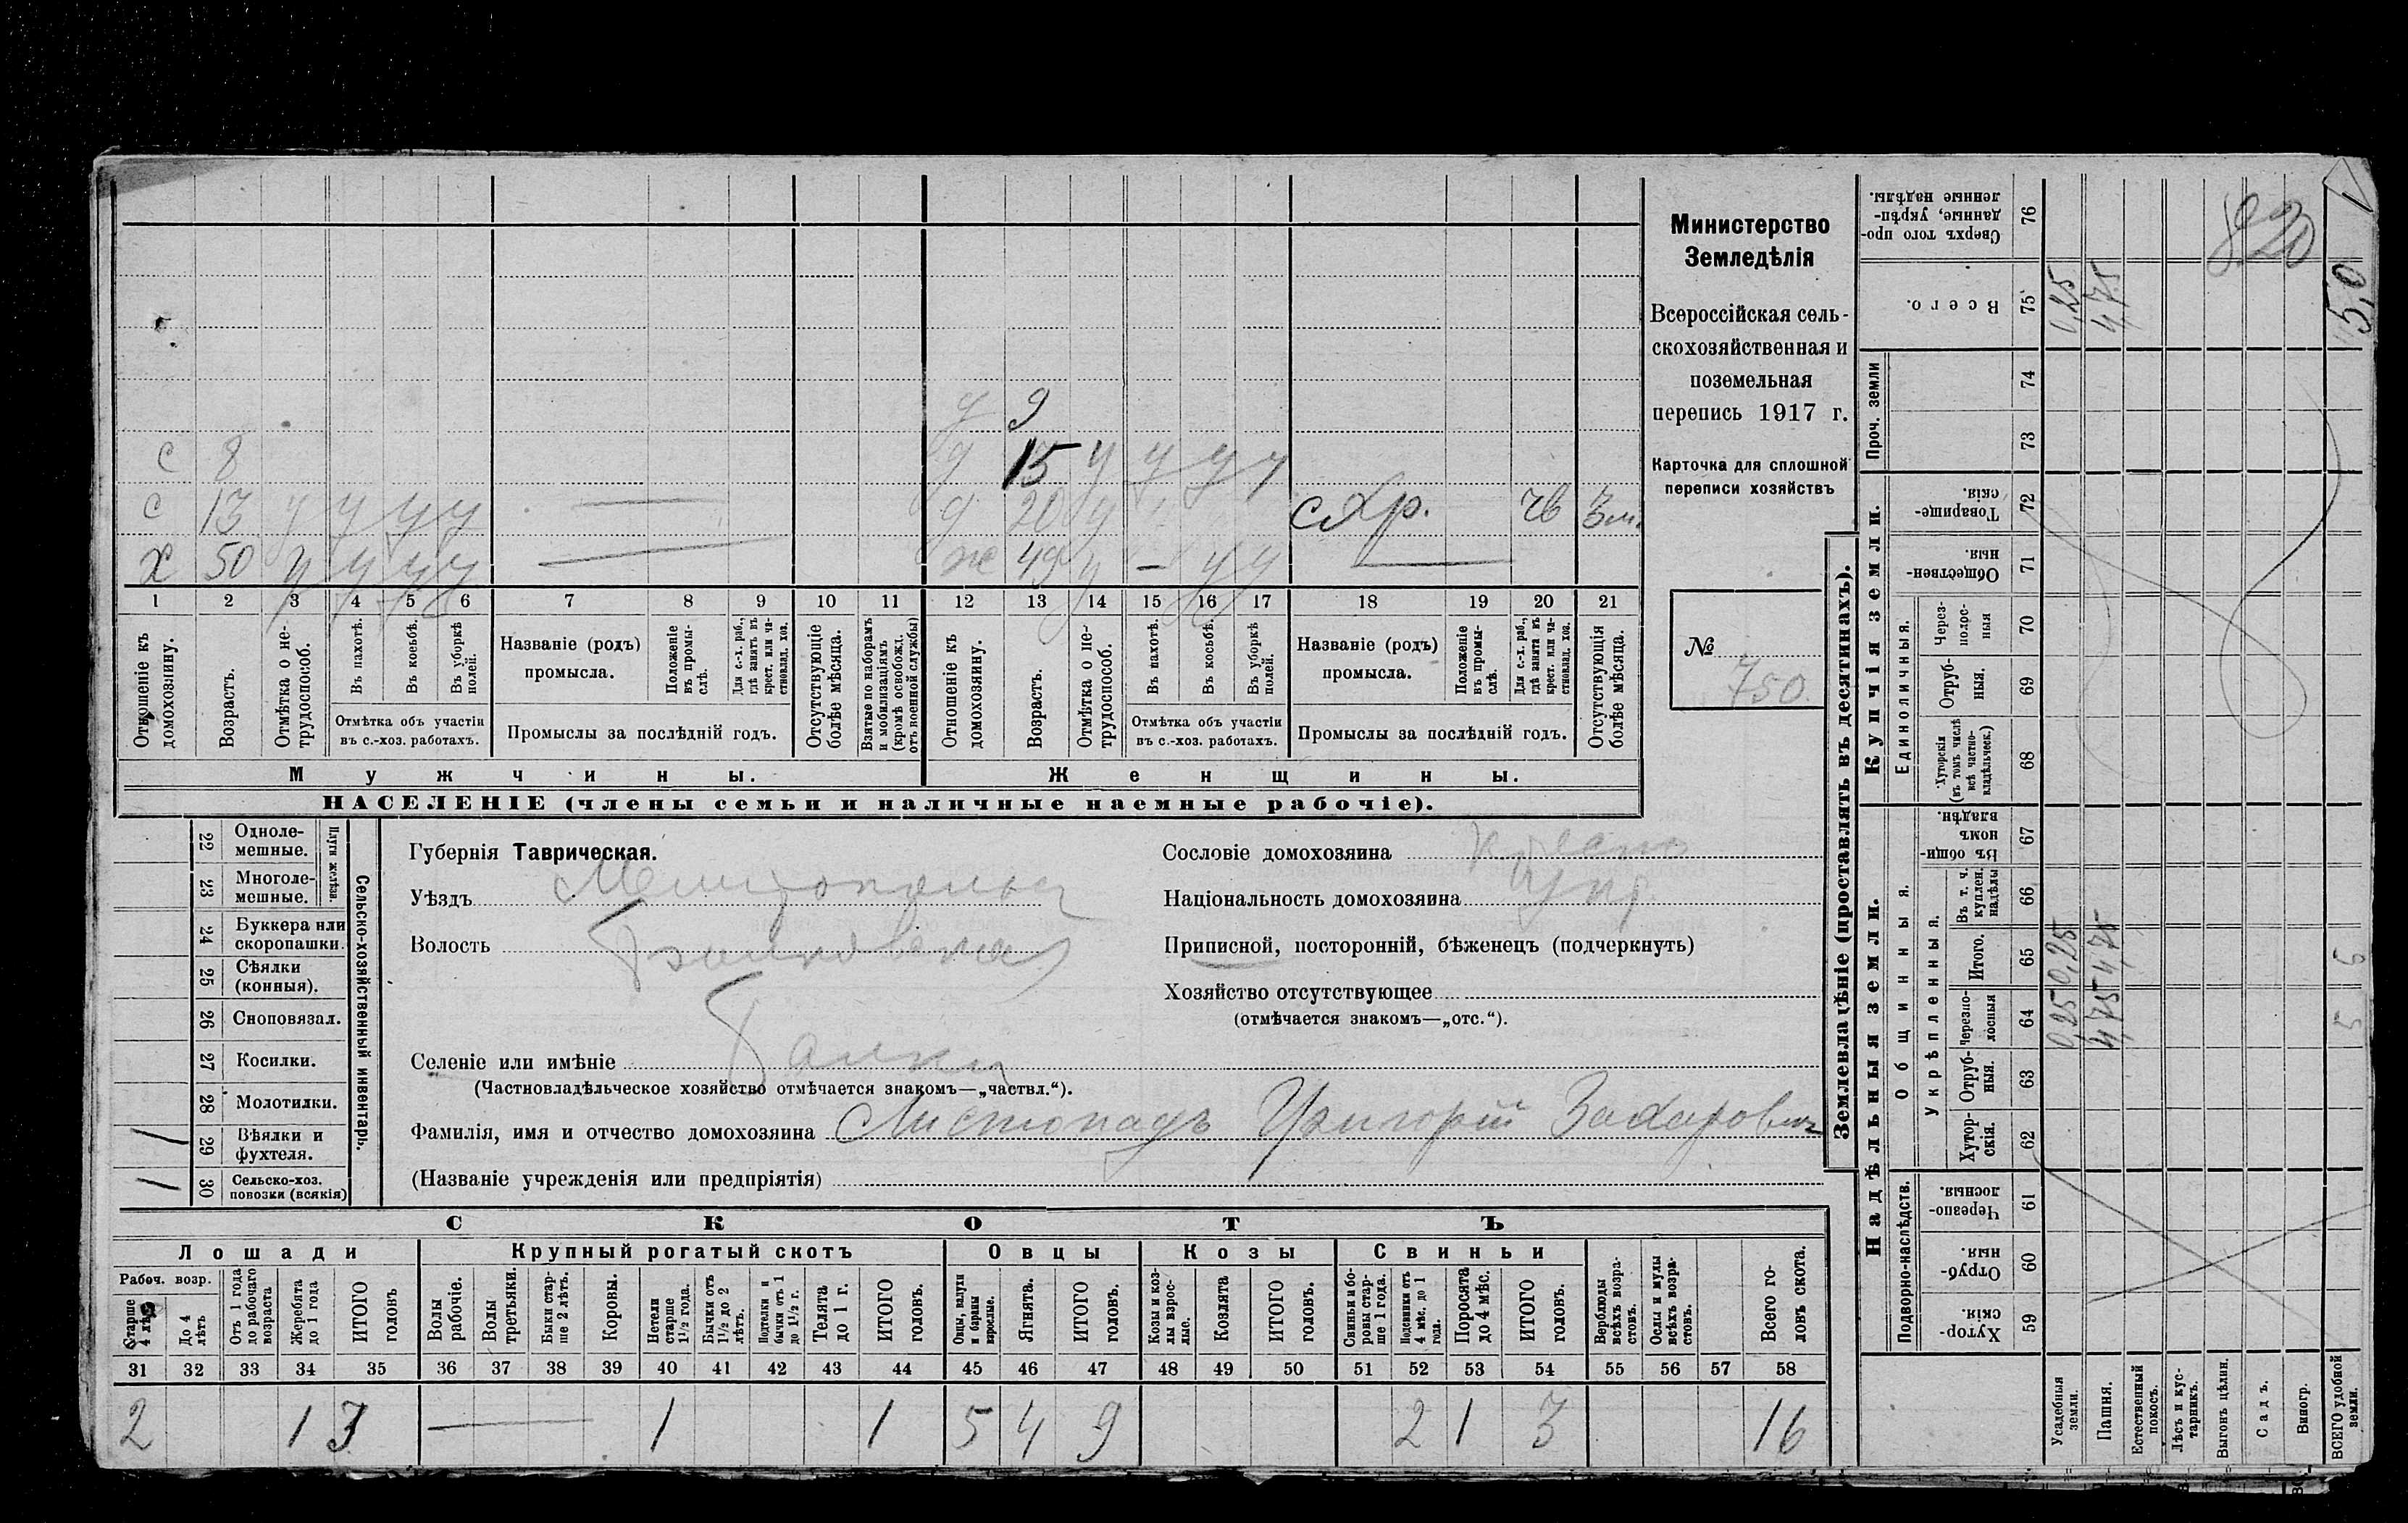 с 8
с 13 у у у у
х 50 у у у у
д 9
д 15 у у у у
д 20 у схр. чв 3 м.
ж 49 у — у у
1 2 3 4 5 6 7 8 9 10 11 12 13 14 15 16 17 18 19 20 21
Отношеніе къ домохозяину.
Возрастъ.
Отмѣтка о нетрудоспособ.
Въ пахотѣ.
Въ косьбѣ.
Въ уборкѣ полей.
Отмѣтка объ участіи въ с.-хоз. работахъ.
Названіе (родъ) промысла.
Положеніе въ промыслѣ.
Для с.-х. раб., гдѣ занятъ въ крест. или частновлад. хоз.
Промыслы за послѣдній годъ.
Отсутствующіе болѣе мѣсяца.
Взятые по наборамъ и мобилизаціямъ (кромѣ освобожд. отъ военной службы)
Отношеніе къ домохозяину.
Возрастъ.
Отмѣтка о нетрудоспособ.
Въ пахотѣ.
Въ косьбѣ.
Въ уборкѣ полей.
Отмѣтка объ участіи въ с.-хоз. работахъ.
Названіе (родъ) промысла.
Положеніе въ промыслѣ.
Для с.-х. раб., гдѣ занятъ въ крест. или частновлад. хоз.
Промыслы за послѣдній годъ.
Отсутствующія болѣе мѣсяца.
Мужчины.
Женщины.
НАСЕЛЕНІЕ (члены семьи и наличные наемные рабочіе).
Министерство
Земледѣлія
Всероссійская сель-
скохозяйственная и
поземельная
перепись 1917 г.
Карточка для сплошной
переписи хозяйствъ
№ 750.
Сельско-хозяйственный инвентарь.
Плуги желѣзн.
22 Однолемешные.
23 Многолемешные.
24 Буккера или скоропашки.
25 Сѣялки (конныя).
26 Сноповязал.
27 Косилки.
28 Молотилки.
29 Вѣялки и фухтеля. 1
30 Сельско-хоз. повозки (всякія) 1
Губернія Таврическая.
Уѣздъ Мелитопольск
Волость Балковская
Селеніе или имѣніе Балки
(Частновладѣльческое хозяйство отмѣчается знакомъ—„частвл.“).
Фамилія, имя и отчество домохозяина Листопадъ Григорій Захарович
(Названіе учрежденія или предпріятія)
Сословіе домохозяина
Національность домохозяина
Приписной, посторонній, бѣженецъ (подчеркнуть)
Хозяйство отсутствующее
(отмѣчается знакомъ—„отс.“).
СКОТЪ
Лошади Крупный рогатый скотъ Овцы Козы Свиньи
Рабоч. возр.
Старше 4 лѣтъ
До 4 лѣтъ
Отъ 1 года до рабочаго возраста
Жеребята до 1 года
ИТОГО головъ
Волы рабочіе.
Волы третьяки.
Быки старше 2 лѣтъ.
Коровы.
Нетели старше 1½ года.
Бычки отъ 1½ до 2 лѣтъ.
Подтелки и бычки отъ 1 до 1½ г.
Телята до 1 г.
ИТОГО головъ.
Овцы, валухи и бараны взрослые.
Ягнята.
ИТОГО головъ.
Козы и козлы взрослые.
Козлята
ИТОГО головъ.
Свиньи и боровы старше 1 года.
Подсвинки отъ 4 мѣс. до 1 года.
Поросята до 4 мѣс.
ИТОГО головъ.
Верблюды всѣхъ возрастовъ.
Ослы и мулы всѣхъ возрастовъ.
Всего головъ скота.
31 32 33 34 35 36 37 38 39 40 41 42 43 44 45 46 47 48 49 50 51 52 53 54 55 56 57 58
2 1 3 — 1 1 5 4 9 2 1 3 16
Землевладѣніе (проставлять въ десятинахъ).
Надѣльныя земли.
Купчія земли.
Проч. земли
Подворно-наслѣдств.
Общинныя.
Укрѣпленныя.
Единоличныя.
Хуторскія. 59
Отрубныя. 60
Черезполосныя. 61
Хуторскія. 62
Отрубныя. 63
Черезполосныя 64
Итого. 65
Въ т. ч. куплен. надѣлы 66
Въ общинномъ владѣн. 67
Хуторскія (въ томъ числѣ всѣ частновладѣльческ.) 68
Отрубныя. 69
Черезполосныя 70
Общественныя. 71
Товарищескія. 72
73
74
Всего. 75
Сверхъ того проданные, укрѣпленные надѣлы. 76
Усадебныя земли. 0,25 0,25 0,25
Пашня. 4,75 4,75 4,75
Естественный покосъ.
Лѣсъ и кустарникъ.
Выгонъ цѣлин.
Садъ.
Виногр.
ВСЕГО удобной земли. 5 5 5,0
820